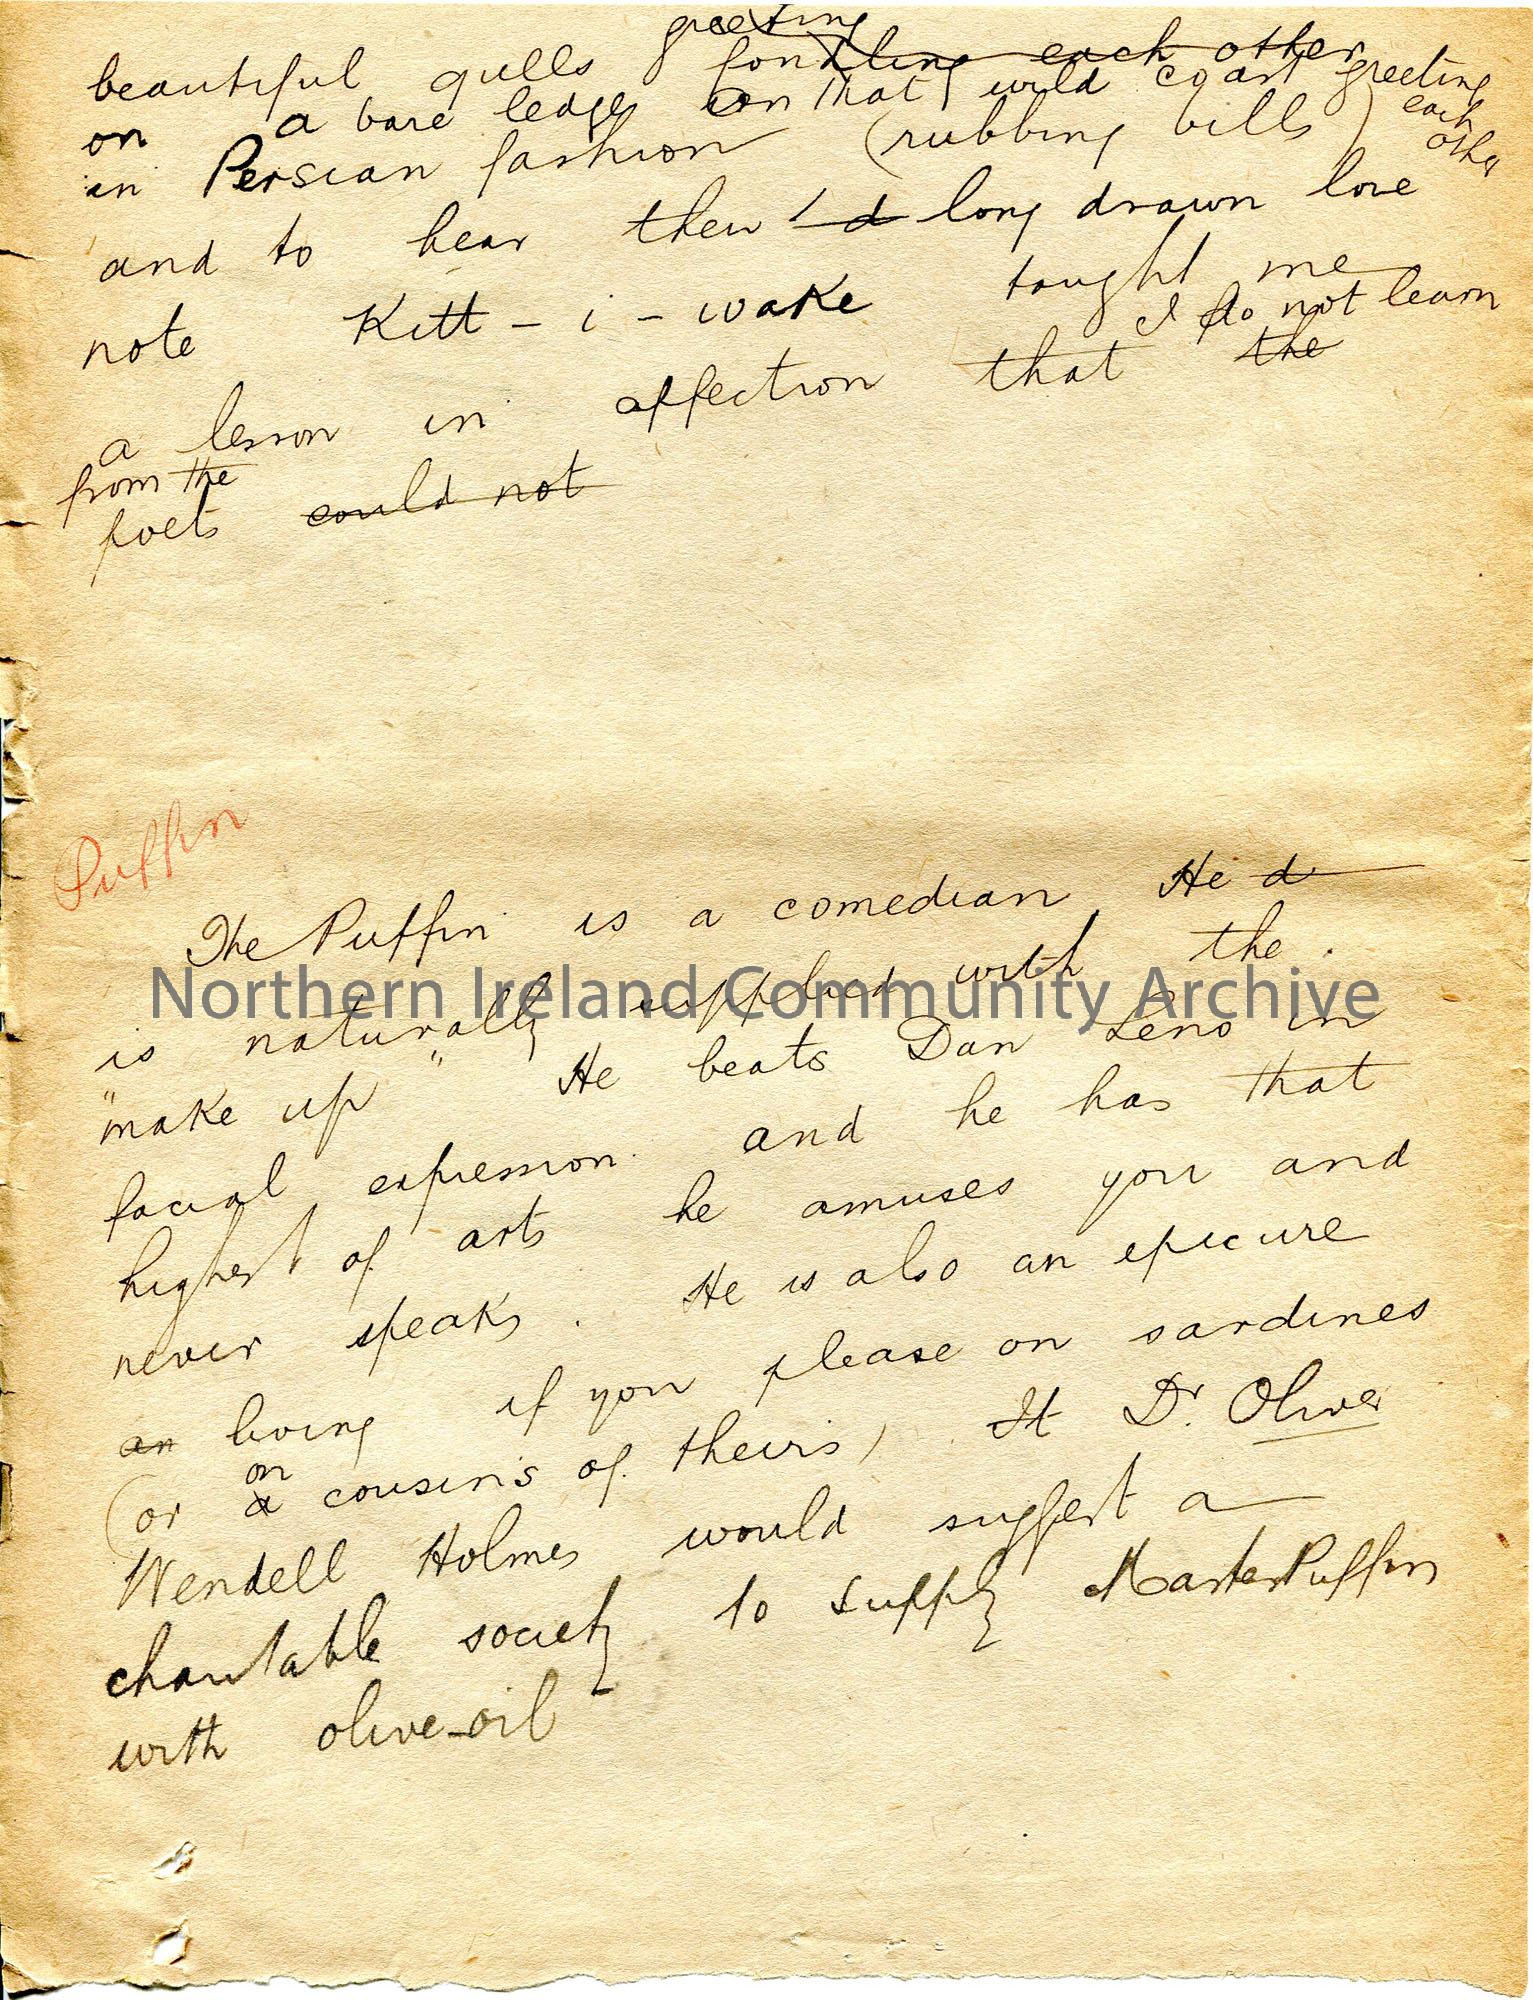 greeting
beautiful gulls fondling each other
on a bare ledge on that wild coast greeting
each
other
in Persian fashion (rubbing bills)
and to hear their d long drawn love
note Kitt - i - wake taught me
I do not learn
a lesson in affection that the
from the
poets could not
Puffin
The Puffin is a comedian He d
is naturally supplied with the
"make up" He beats Dan Leno in
facial expression. and he has that
highest of arts he amuses you and
never speaks. He is also an epicure
an living if you please on sardines
on
(or a cousins of theirs) It Dr. Oliver
Wendell Holmes would suggest a
charitable society to supply Master Puffin
with olive-oil
Northern Ireland Community Archive